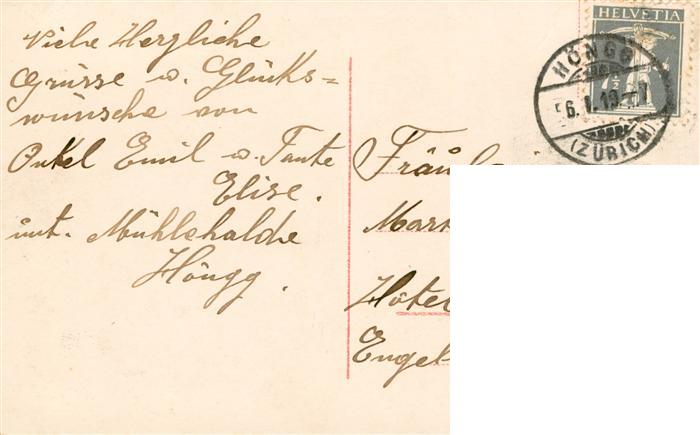 Viele Herzliche
Grüsse u. Glücks=
wünsche von
Onkel Emil u. Tante
Elise.
unt. Mühlehalde
Höngg.
Fräul
Mar
Hôtel
Engel
HELVETIA
HÖNGG
(ZÜRICH)